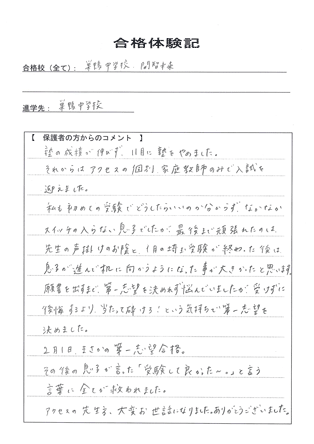 合格体験記
合格校（全て）： 巣鴨中学校、開智未来
進学先： 巣鴨中学校
【 保護者の方からのコメント 】
塾の成績が伸びず、11月に塾をやめました。
それからはアクセスの個別、家庭教師のみで入試を
迎えました。
私も初めての受験でどうしたらいいのか分からず、なかなか
スイッチの入らない息子でしたが、最後まで頑張れたのは、
先生の声掛けのお陰と、1月の埼玉受験が終わった後は、
息子が進んで机に向かうようになった事が大きかったと思います。
願書を出すまで、第一志望を決めれず悩んでいましたが、受けずに
後悔するより、当たって砕けろ！という気持ちで第一志望を
決めました。
2月1日、まさかの第一志望合格。
その後の息子が言った「受験して良かったー。」と言う
言葉に全てが救われました。
アクセスの先生方、大変お世話になりました。ありがとうございました。